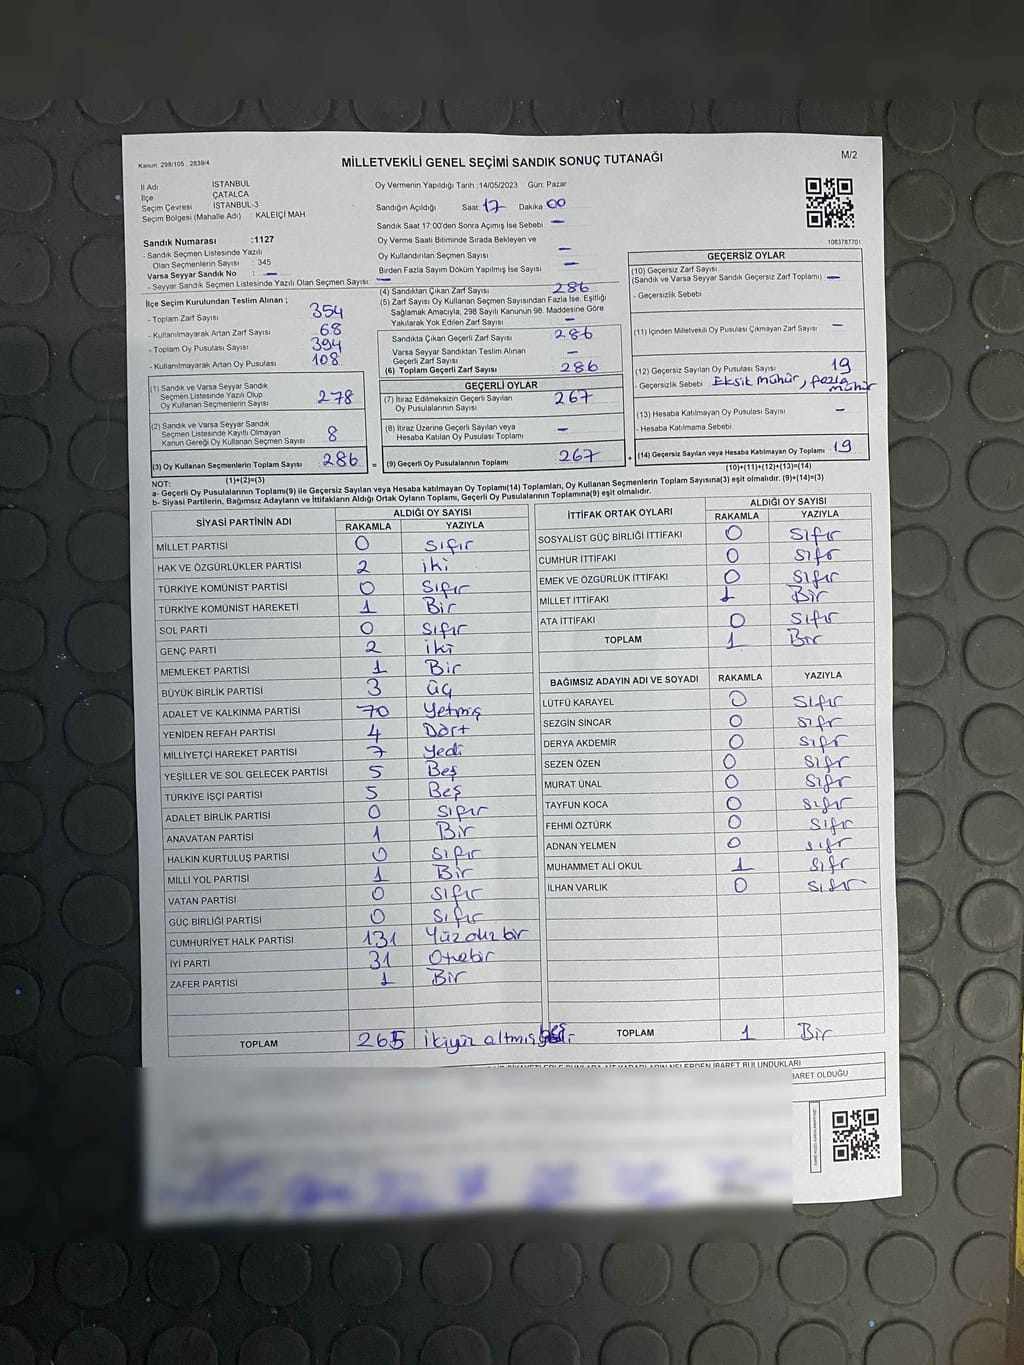 Kanun: 298/105 - 2839/4
MİLLETVEKİLİ GENEL SEÇİMİ SANDIK SONUÇ TUTANAĞI
M/2
İl Adı İSTANBUL
İlçe ÇATALCA
Seçim Çevresi İSTANBUL-3
Seçim Bölgesi (Mahalle Adı) KALEİÇİ MAH
Oy Vermenin Yapıldığı Tarih :14/05/2023 Gün: Pazar
Sandığın Açıldığı Saat 17 Dakika 00
Sandık Saat 17:00'den Sonra Açımış İse Sebebi —
Oy Verme Saati Bitiminde Sırada Bekleyen ve
Oy Kullandırılan Seçmen Sayısı —
Birden Fazla Sayım Döküm Yapılmış İse Sayısı —
1083787701
Sandık Numarası :1127
- Sandık Seçmen Listesinde Yazılı
Olan Seçmenlerin Sayısı : 345
Varsa Seyyar Sandık No : —
- Seyyar Sandık Seçmen Listesinde Yazılı Olan Seçmen Sayısı: —
İlçe Seçim Kurulundan Teslim Alınan ;
- Toplam Zarf Sayısı 354
- Kullanılmayarak Artan Zarf Sayısı 68
- Toplam Oy Pusulası Sayısı 394
- Kullanılmayarak Artan Oy Pusulası 108
(1) Sandık ve Varsa Seyyar Sandık
Seçmen Listesinde Yazılı Olup
Oy Kullanan Seçmenlerin Sayısı 278
(2) Sandık ve Varsa Seyyar Sandık
Seçmen Listesinde Kayıtlı Olmayan
Kanun Gereği Oy Kullanan Seçmen Sayısı 8
(3) Oy Kullanan Seçmenlerin Toplam Sayısı 286
(1)+(2)=(3)
(4) Sandıktan Çıkan Zarf Sayısı 286
(5) Zarf Sayısı Oy Kullanan Seçmen Sayısından Fazla İse, Eşitliği
Sağlamak Amacıyla, 298 Sayılı Kanunun 98. Maddesine Göre
Yakılarak Yok Edilen Zarf Sayısı —
Sandıkta Çıkan Geçerli Zarf Sayısı 286
Varsa Seyyar Sandıktan Teslim Alınan
Geçerli Zarf Sayısı —
(6) Toplam Geçerli Zarf Sayısı 286
GEÇERLİ OYLAR
(7) İtiraz Edilmeksizin Geçerli Sayılan
Oy Pusulalarının Sayısı 267
(8) İtiraz Üzerine Geçerli Sayılan veya
Hesaba Katılan Oy Pusulası Toplamı —
= (9) Geçerli Oy Pusulalarının Toplamı 267
GEÇERSİZ OYLAR
(10) Geçersiz Zarf Sayısı
(Sandık ve Varsa Seyyar Sandık Geçersiz Zarf Toplamı) —
- Geçersizlik Sebebi
(11) İçinden Milletvekili Oy Pusulası Çıkmayan Zarf Sayısı —
(12) Geçersiz Sayılan Oy Pusulası Sayısı 19
- Geçersizlik Sebebi Eksik mühür, fazla
mühür
(13) Hesaba Katılmayan Oy Pusulası Sayısı —
- Hesaba Katılmama Sebebi
+ (14) Geçersiz Sayılan veya Hesaba Katılmayan Oy Toplamı : 19
(10)+(11)+(12)+(13)=(14)
NOT:
a- Geçerli Oy Pusulalarının Toplamı(9) ile Geçersiz Sayılan veya Hesaba Katılmayan Oy Toplamı(14) Toplamları, Oy Kullanan Seçmenlerin Toplam Sayısına(3) eşit olmalıdır. (9)+(14)=(3)
b- Siyasi Partilerin, Bağımsız Adayların ve İttifakların Aldığı Ortak Oyların Toplamı, Geçerli Oy Pusulalarının Toplamına(9) eşit olmalıdır.
SİYASİ PARTİNİN ADI ALDIĞI OY SAYISI
RAKAMLA YAZIYLA
MİLLET PARTİSİ 0 sıfır
HAK VE ÖZGÜRLÜKLER PARTİSİ 2 iki
TÜRKİYE KOMÜNİST PARTİSİ 0 Sıfır
TÜRKİYE KOMÜNİST HAREKETİ 1 Bir
SOL PARTİ 0 Sıfır
GENÇ PARTİ 2 iki
MEMLEKET PARTİSİ 1 Bir
BÜYÜK BİRLİK PARTİSİ 3 üç
ADALET VE KALKINMA PARTİSİ 70 Yetmiş
YENİDEN REFAH PARTİSİ 4 Dört
MİLLİYETÇİ HAREKET PARTİSİ 7 Yedi
YEŞİLLER VE SOL GELECEK PARTİSİ 5 Beş
TÜRKİYE İŞÇİ PARTİSİ 5 Beş
ADALET BİRLİK PARTİSİ 0 sıfır
ANAVATAN PARTİSİ 1 Bir
HALKIN KURTULUŞ PARTİSİ 0 Sıfır
MİLLİ YOL PARTİSİ 1 Bir
VATAN PARTİSİ 0 sıfır
GÜÇ BİRLİĞİ PARTİSİ 0 Sıfır
CUMHURİYET HALK PARTİSİ 131 Yüzotuzbir
İYİ PARTİ 31 Otuzbir
ZAFER PARTİSİ 1 Bir
TOPLAM 265 İkiyüz altmış beş
İTTİFAK ORTAK OYLARI ALDIĞI OY SAYISI
RAKAMLA YAZIYLA
SOSYALİST GÜÇ BİRLİĞİ İTTİFAKI 0 Sıfır
CUMHUR İTTİFAKI 0 Sıfır
EMEK VE ÖZGÜRLÜK İTTİFAKI 0 Sıfır
MİLLET İTTİFAKI 1 Bir
ATA İTTİFAKI 0 Sıfır
TOPLAM 1 Bir
BAĞIMSIZ ADAYIN ADI VE SOYADI RAKAMLA YAZIYLA
LÜTFÜ KARAYEL 0 Sıfır
SEZGİN SİNCAR 0 sıfır
DERYA AKDEMİR 0 sıfır
SEZEN ÖZEN 0 sıfır
MURAT ÜNAL 0 Sıfır
TAYFUN KOCA 0 sıfır
FEHMİ ÖZTÜRK 0 Sıfır
ADNAN YELMEN 0 sıfır
MUHAMMET ALİ OKUL 1 sıfır
İLHAN VARLIK 0 sıfır
TOPLAM 1 Bir
İBARET BULUNDUKLARI
BARET OLDUĞU